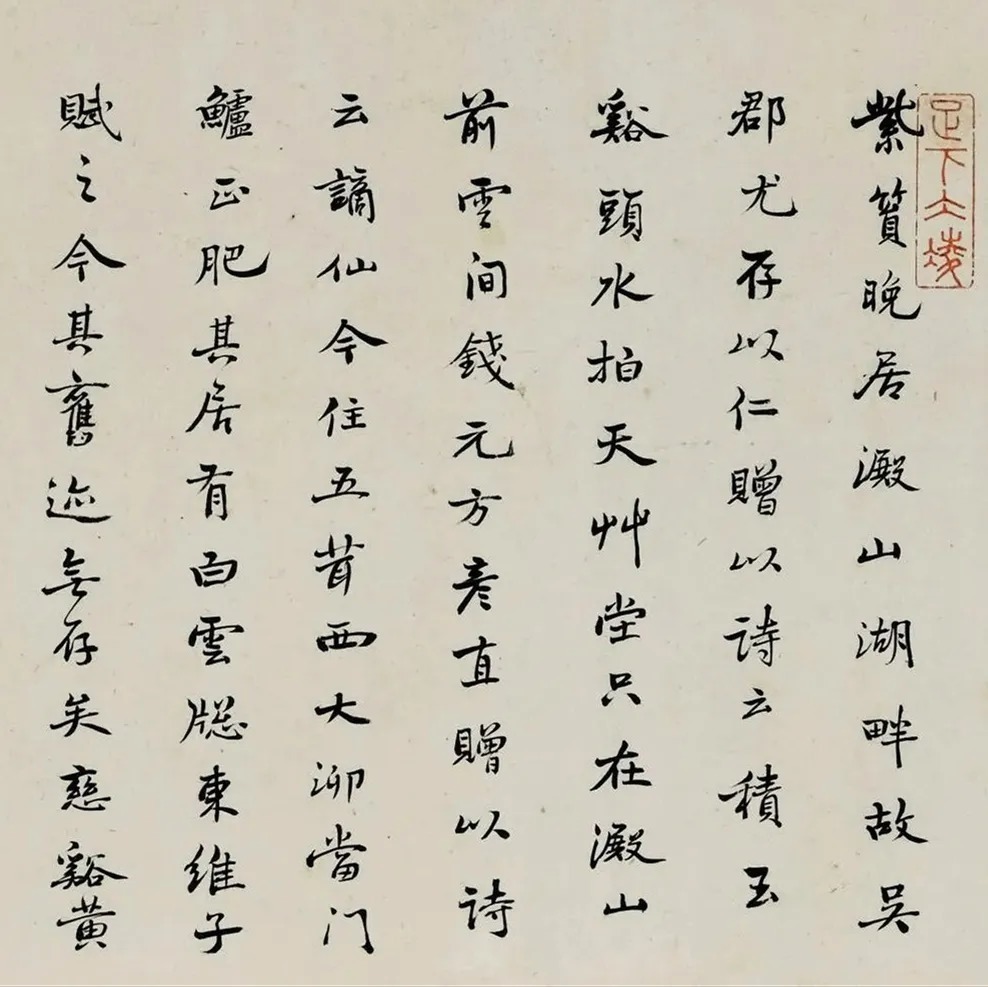 紫質晚居澱山湖畔故吳
郡尤存以仁贈以詩云積玉
谿頭水拍天艸堂只在澱山
前雲間錢元方彥直贈以詩
云謫仙今住五茸西大泖當門
鱸正肥其居有白雲牕東維子
賦之今其舊迹無存矣慈谿黃
足下大